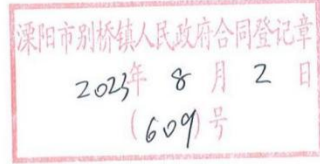 溧阳市别桥镇人民政府合同登记章
2023年 8 月 2 日
(609)号